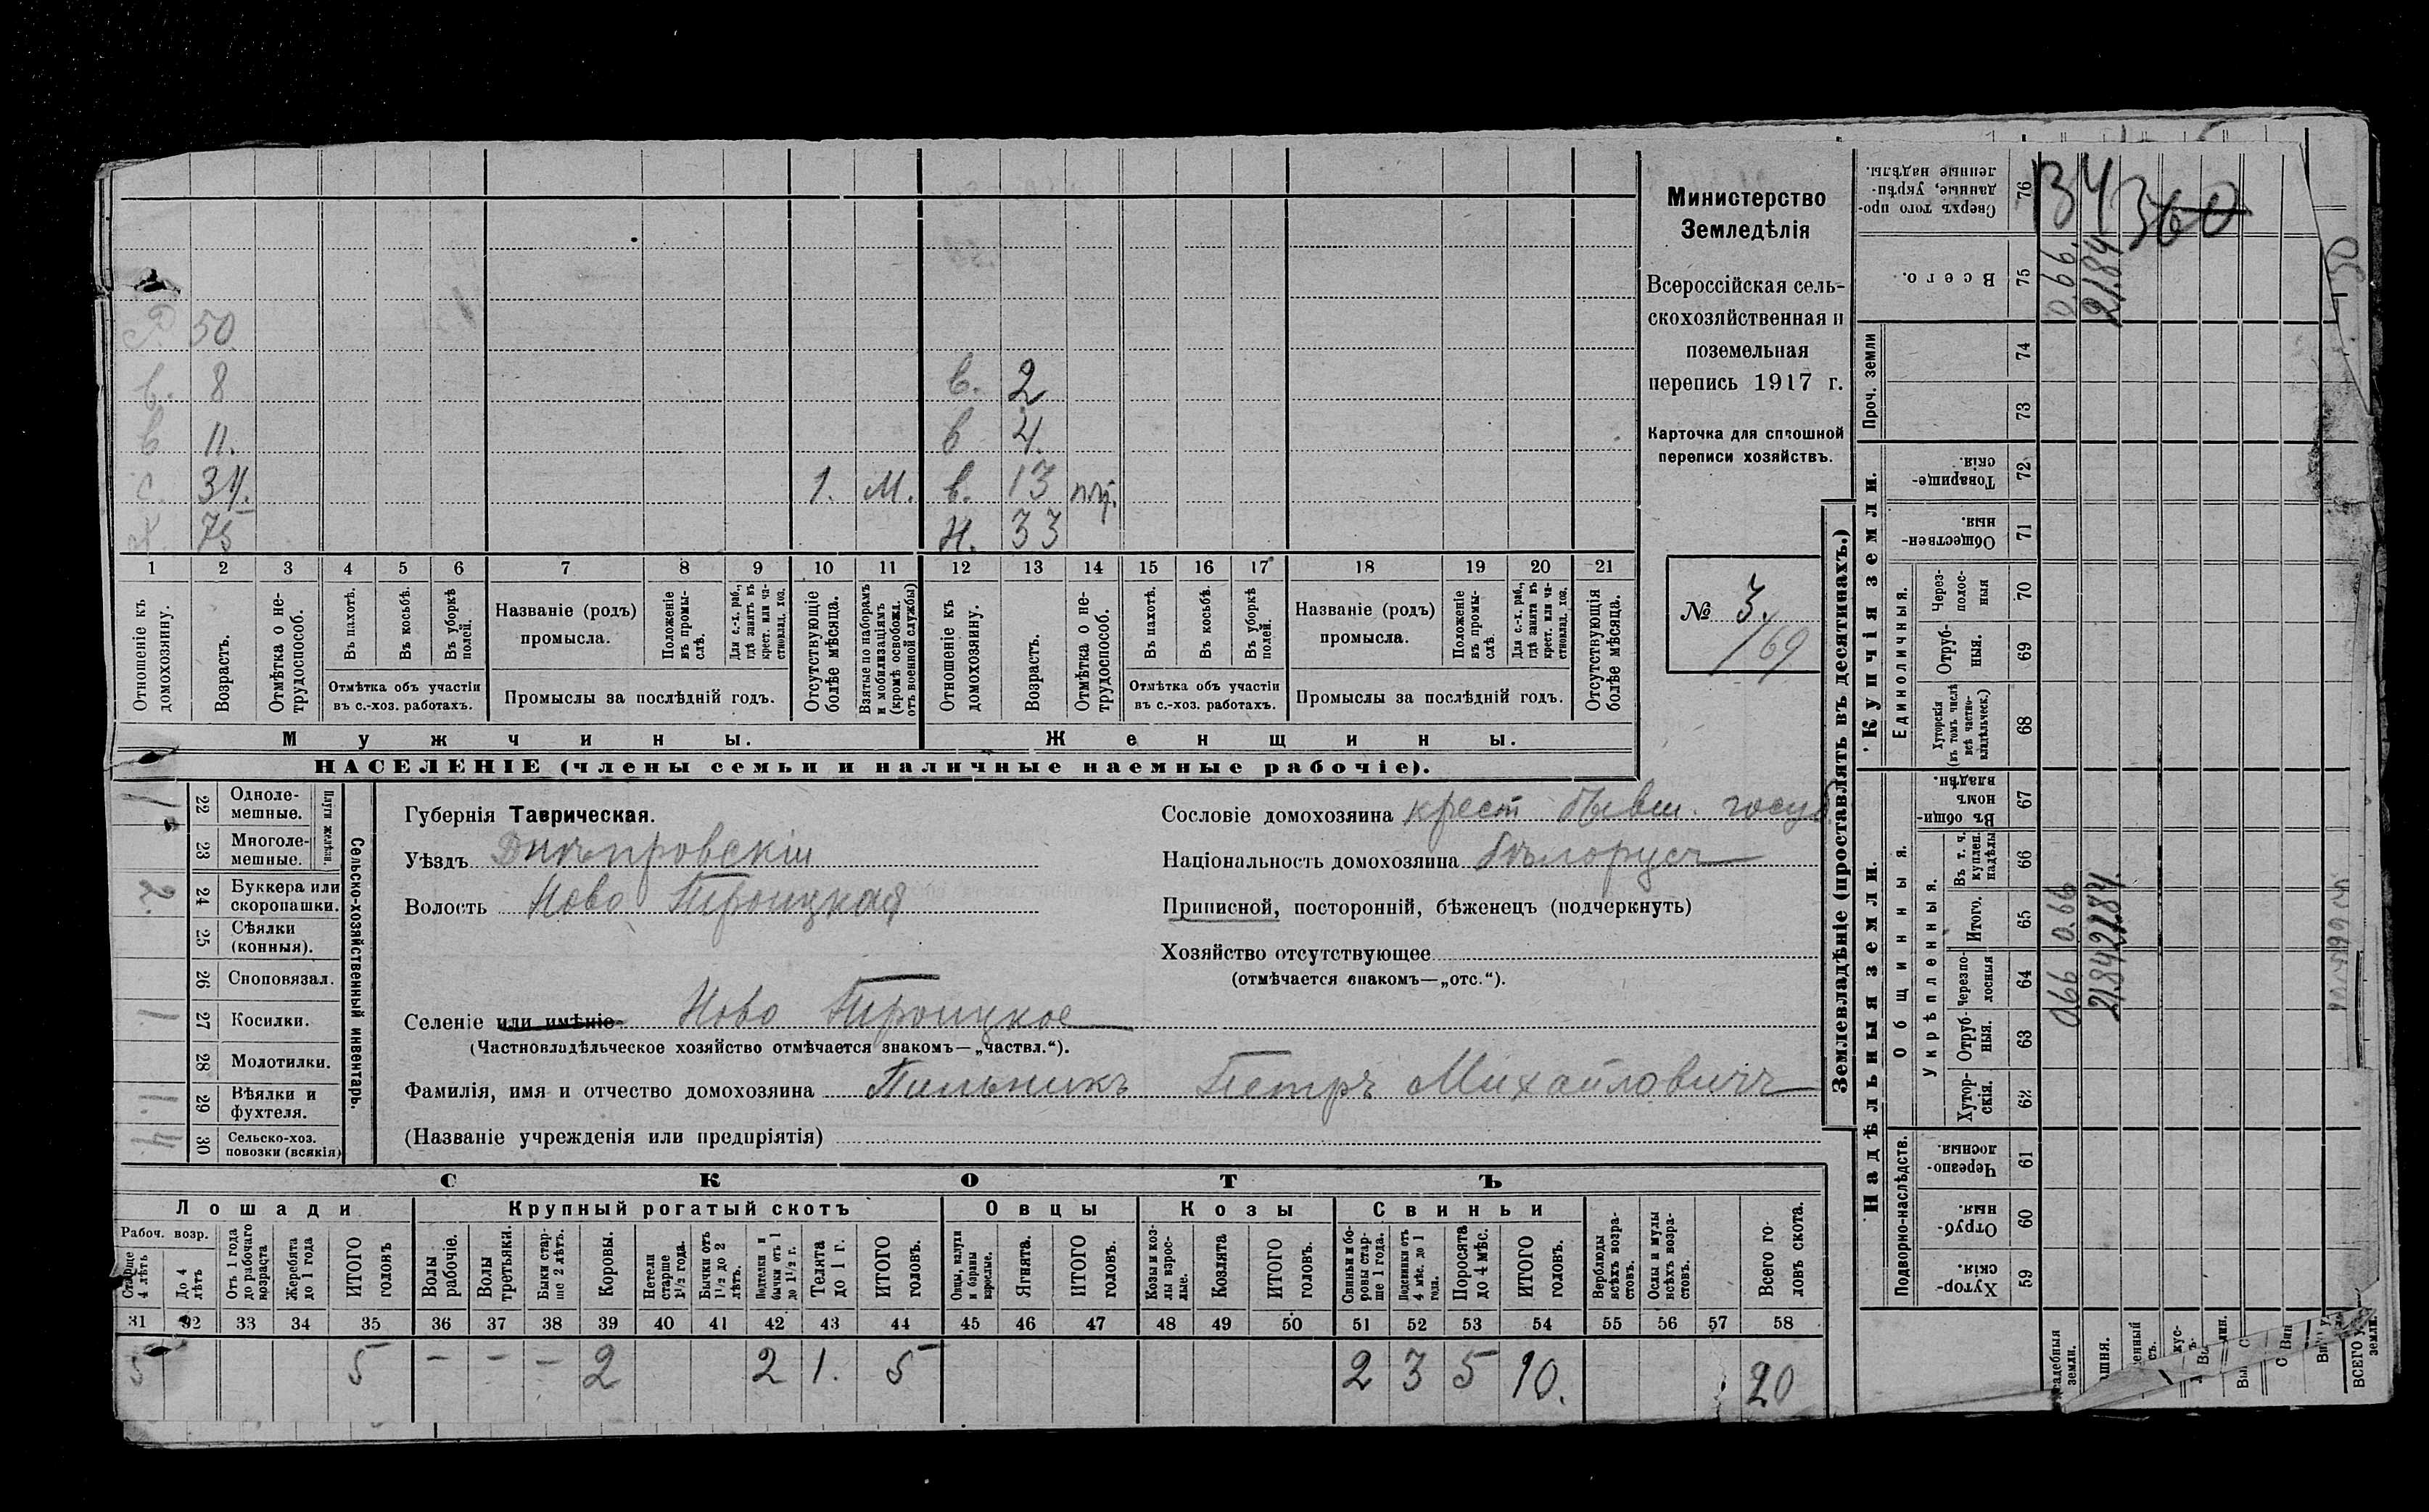 Р. 50
в. 8 в. 2
в 11. в 4.
с. 34. 1. М. в. 13
75 Н. 33
1 2 3 4 5 6 7 8 9 10 11 12 13 14 15 16 17 18 19 20 21
Отношеніе къ домохозяину.
Возрастъ.
Отмѣтка о нетрудоспособ.
Въ пахотѣ.
Въ косьбѣ.
Въ уборкѣ полей.
Отмѣтка объ участіи въ с.-хоз. работахъ.
Названіе (родъ) промысла.
Положеніе въ промыслѣ.
Для с.-х. раб., гдѣ занятъ въ крест. или частновлад. хоз.
Промыслы за послѣдній годъ.
Отсутствующіе болѣе мѣсяца.
Взятые по наборамъ и мобилизаціямъ (кромѣ освобожд. отъ военной службы)
Отношеніе къ домохозяину.
Возрастъ.
Отмѣтка о нетрудоспособ.
Въ пахотѣ.
Въ косьбѣ.
Въ уборкѣ полей.
Отмѣтка объ участіи въ с.-хоз. работахъ.
Названіе (родъ) промысла.
Положеніе въ промыслѣ.
Для с.-х. раб., гдѣ занята въ крест. или частновлад. хоз.
Промыслы за послѣдній годъ.
Отсутствующія болѣе мѣсяца.
Мужчины. Женщины.
НАСЕЛЕНІЕ (члены семьи и наличные наемные рабочіе).
Министерство
Земледѣлія
Всероссійская сель-
скохозяйственная и
поземельная
перепись 1917 г.
Карточка для сплошной
переписи хозяйствъ.
№ 3.
/69
22 Однолемешные. 1
23 Многолемешные.
Плуги желѣзн.
24 Буккера или скоропашки. 2.
25 Сѣялки (конныя).
26 Сноповязал.
27 Косилки. 1
28 Молотилки.
29 Вѣялки и фухтеля. 1.
30 Сельско-хоз. повозки (всякія) 4
Сельско-хозяйственный инвентарь.
Губернія Таврическая.
Уѣздъ Днѣпровскій
Волость Ново Троицкая
Селеніе или имѣніе Ново Троицкое
(Частновладѣльческое хозяйство отмѣчается знакомъ—„частвл.“).
Фамилія, имя и отчество домохозяина Пильникъ Петръ Михайловичъ
(Названіе учрежденія или предпріятія)
Сословіе домохозяина крест бывш. госуд
Національность домохозяина бѣлорусъ
Приписной, посторонній, бѣженецъ (подчеркнуть)
Хозяйство отсутствующее
(отмѣчается знакомъ—„отс.“).
СКОТЪ
Лошади Крупный рогатый скотъ Овцы Козы Свиньи
Рабоч. возр.
Старше 4 лѣтъ
До 4 лѣтъ
Отъ 1 года до рабочаго возраста
Жеребята до 1 года
ИТОГО головъ
Волы рабочіе.
Волы третьяки.
Быки старше 2 лѣтъ.
Коровы.
Нетели старше 1½ года.
Бычки отъ 1½ до 2 лѣтъ.
Подтелки и бычки отъ 1 до 1½ г.
Телята до 1 г.
ИТОГО головъ.
Овцы, валухи и бараны взрослые.
Ягнята.
ИТОГО головъ.
Козы и козлы взрослые.
Козлята
ИТОГО головъ.
Свиньи и боровы старше 1 года.
Подсвинки отъ 4 мѣс. до 1 года.
Поросята до 4 мѣс.
ИТОГО головъ.
Верблюды всѣхъ возрастовъ.
Ослы и мулы всѣхъ возрастовъ.
Всего головъ скота.
31 32 33 34 35 36 37 38 39 40 41 42 43 44 45 46 47 48 49 50 51 52 53 54 55 56 57 58
5 5 – – – 2 2 1. 5 2 3 5 10. 20
Землевладѣніе (проставлять въ десятинахъ.)
Купчія земли.
Надѣльныя земли.
Сверхъ того проданные, укрѣпленные надѣлы. 76
134 360
Всего. 75 0.66. 21.84
Проч. земли 74 73
Товарищескія. 72
Общественныя. 71
Единоличныя.
Черезполосныя 70
Отрубныя. 69
Хуторскія (въ томъ числѣ всѣ частновладѣльческ.) 68
Общинныя.
Въ общинномъ владѣн. 67
Укрѣпленныя.
Въ т. ч. куплен. надѣлы 66
Итого. 65 0.66 21.84
Черезполосныя 64 0.66 21.84
Отрубныя. 63
Хуторскія. 62
Подворно-наслѣдств.
Черезполосныя. 61
Отрубныя. 60
Хуторскія. 59
земли.
ВСЕГО
земли.